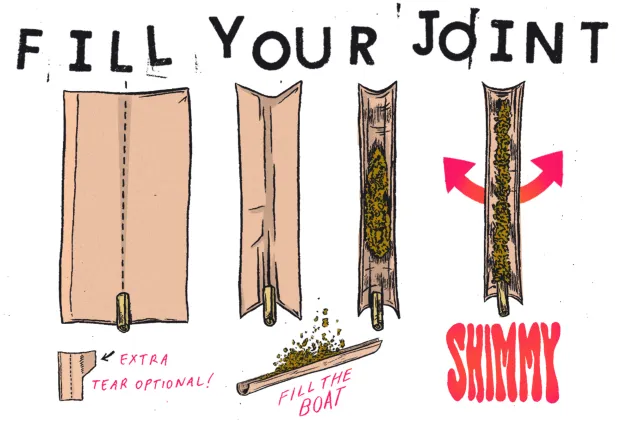 FILL YOUR JOINT
EXTRA
TEAR OPTIONAL!
FILL THE
BOAT
SHIMMY